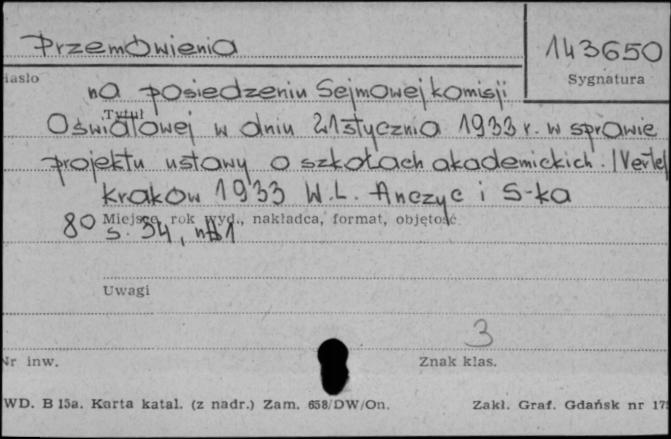 Przemówienia
143650
iasło
Sygnatura
na posiedzeniu Sejmowej komisji
Tytuł
Oświatowej w dniu 21 stycznia 1933 r. w sprawie
projektu ustawy o szkołach akademickich. /Vertel
Kraków 1933 W.L. Anczyc i S-ka
Miejsce, rok wyd., nakładca, format, objętość
80 s. 34,
Uwagi
3
Nr inw.
Znak klas.
WD. B 15a. Karta katal. (z nadr.) Zam. 658/DW/On.
Zakł. Graf. Gdańsk nr 175